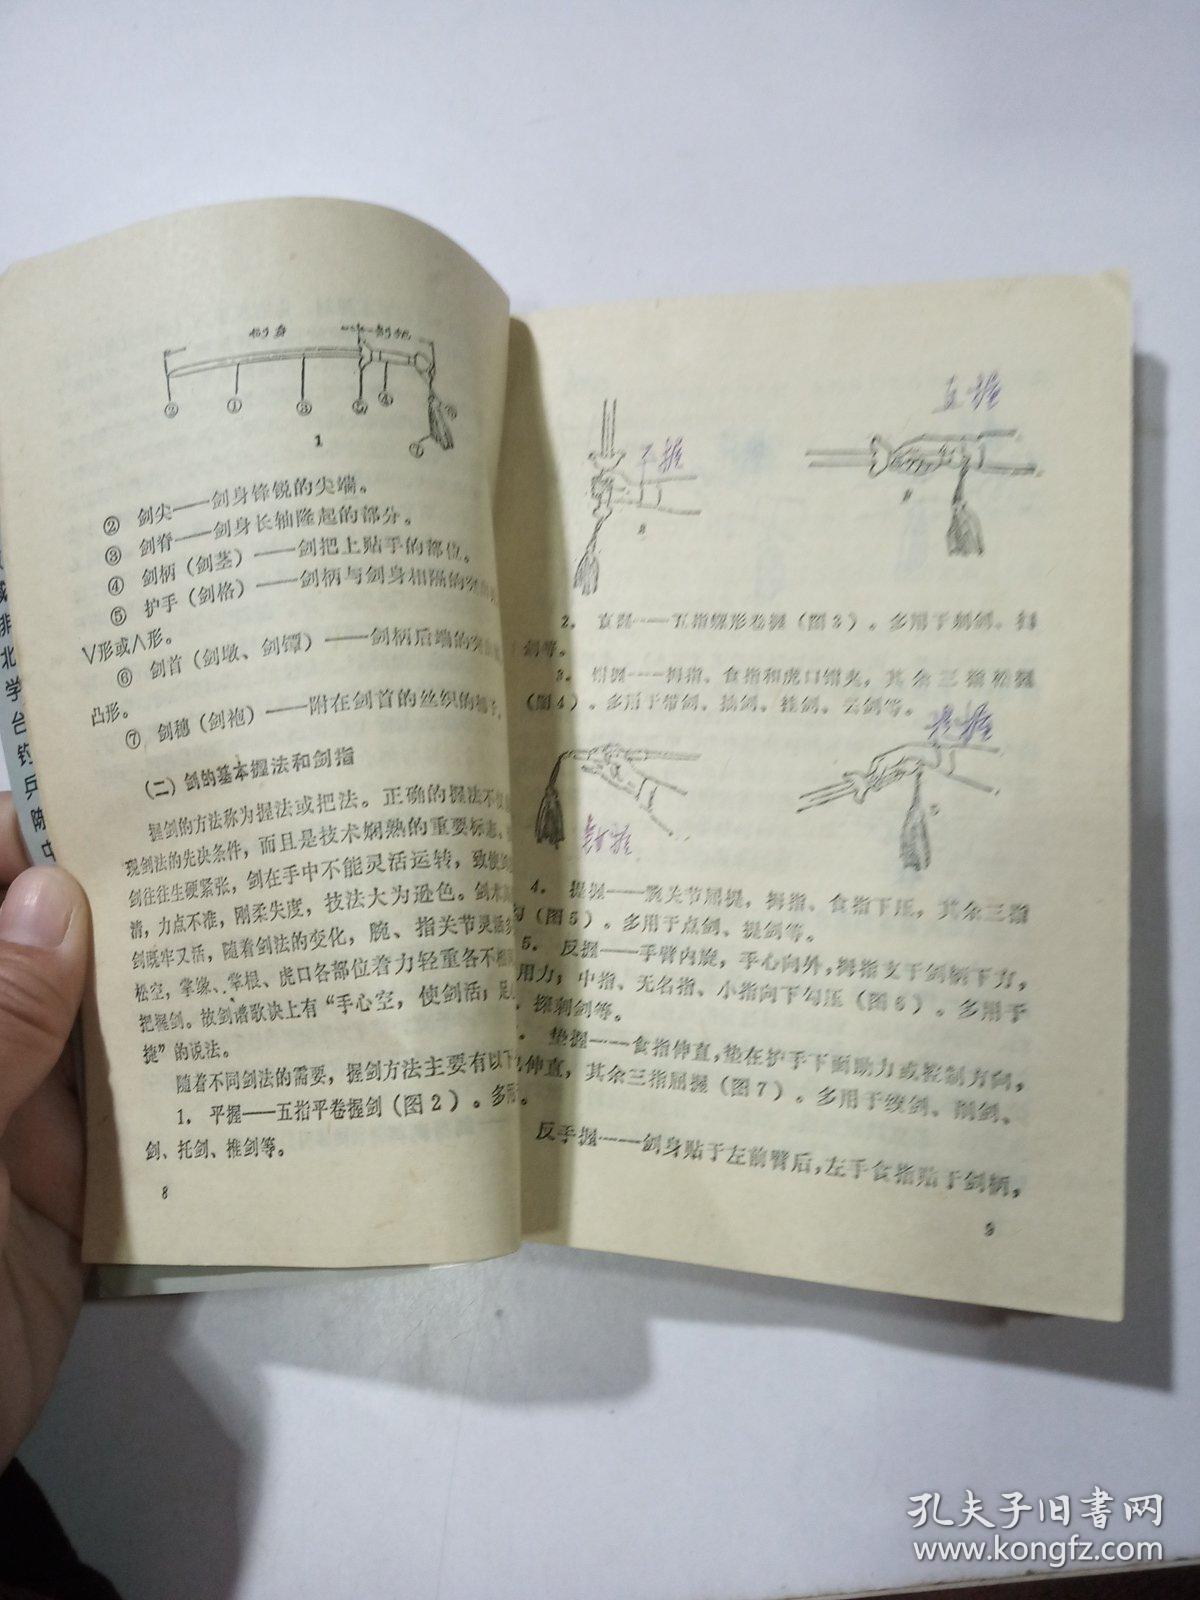 剑身
剑把
②
①
③
⑤
④
⑦
1
② 剑尖——剑身锋锐的尖端。
③ 剑脊——剑身长轴隆起的部分。
④ 剑柄（剑茎）——剑把上贴手的部位。
⑤ 护手（剑格）——剑柄与剑身相隔的突
∨形或∧形。
⑥ 剑首（剑墩、剑镡）——剑柄后端的突
凸形。
⑦ 剑穗（剑袍）——附在剑首的丝织的穗子。
（二）剑的基本握法和剑指
握剑的方法称为握法或把法。正确的握法不
现剑法的先决条件，而且是技术娴熟的重要标志。
剑往往生硬紧张，剑在手中不能灵活运转，致使
清，力点不准，刚柔失度，技法大为逊色。剑术
剑既牢又活，随着剑法的变化，腕、指关节灵活
松空，掌缘、掌根、虎口各部位着力轻重各不相
把握剑。故剑谱歌诀上有“手心空，使剑活；足
捷”的说法。
随着不同剑法的需要，握剑方法主要有以下
1．平握——五指平卷握剑（图2）。多用
剑、托剑、推剑等。
8
平握
直握
2．直握——五指螺形卷握（图3）。多用于刺剑、
剑等。
3．钳握——拇指、食指和虎口钳夹，其余三指松握
（图4）。多用于带剑、抽剑、挂剑、云剑等。
提握
钳握
4．提握——腕关节屈提，拇指、食指下压，其余三指
勾（图5）。多用于点剑、提剑等。
5．反握——手臂内旋，手心向外，拇指支于剑柄下方，
用力；中指、无名指、小指向下勾压（图6）。多用于
、探刺剑等。
垫握——食指伸直，垫在护手下面助力或控制方向，
伸直，其余三指屈握（图7）。多用于绞剑、削剑、
反手握——剑身贴于左前臂后，左手食指贴于剑柄，
9
孔夫子旧书网
www.kongfz.com